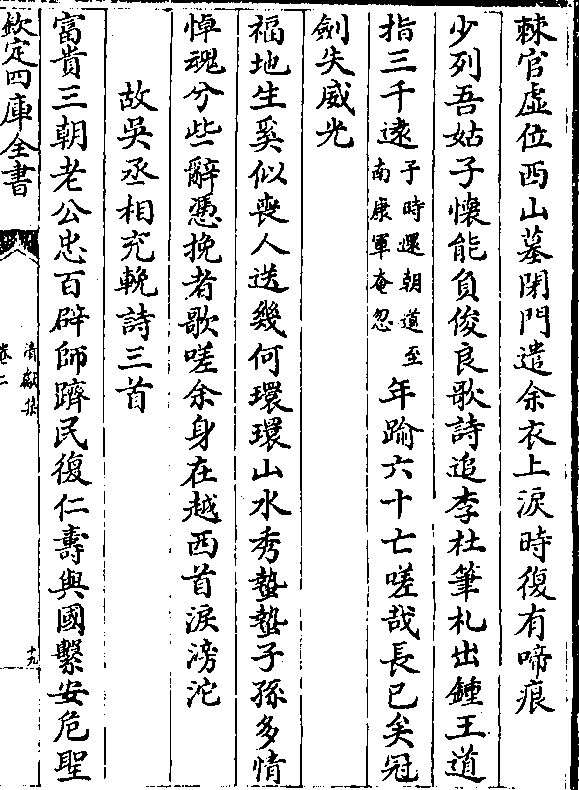 棘官虛位西山墓閉門遣余衣上淚時復有啼痕
少列吾姑子懷能負俊良歌詩追李杜筆札出鍾王道
指三千逺子時還朝道至南康軍奄忽年踰六十亡嗟哉長已矣冠
劍失威光
福地生奚似喪人送幾何環環山水秀蟄蟄子孫多情
悼魂兮些辭憑挽者歌嗟余身在越西首淚滂沱
故吳丞相充輓詩三首
富貴三朝老公忠百辟師躋民復仁壽與國繫安危聖
欽定四庫全書
清獻集
卷二
十九